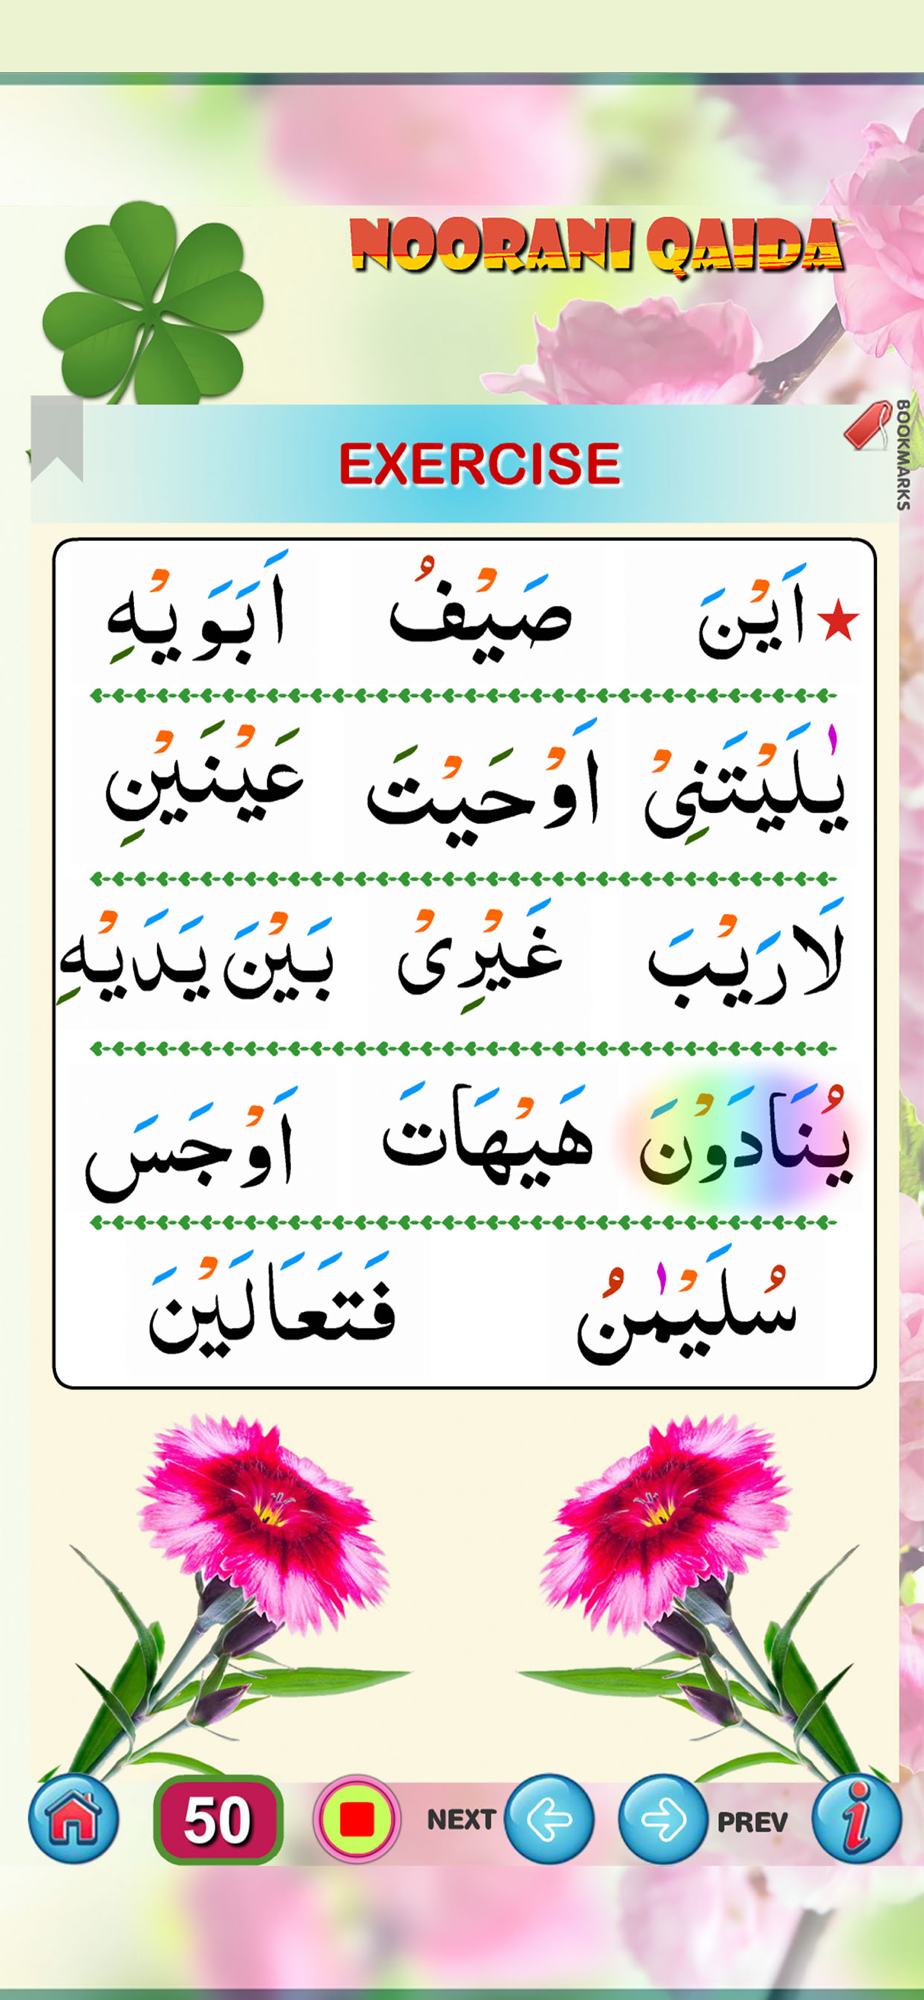 NOORANI QAIDA
BOOKMARKS
EXERCISE
اَيْنَ صَيْفُ اَبَوَيْهِ
يٰلَيْتَنِيْ اَوْحَيْتَ عَيْنَيْنِ
لَارَيْبَ غَيْرِيْ بَيْنَ يَدَيْهِ
يُنَادَوْنَ هَيْهَاتَ اَوْجَسَ
سُلَيْمٰنُ فَتَعَالَيْنَ
50 NEXT PREV i